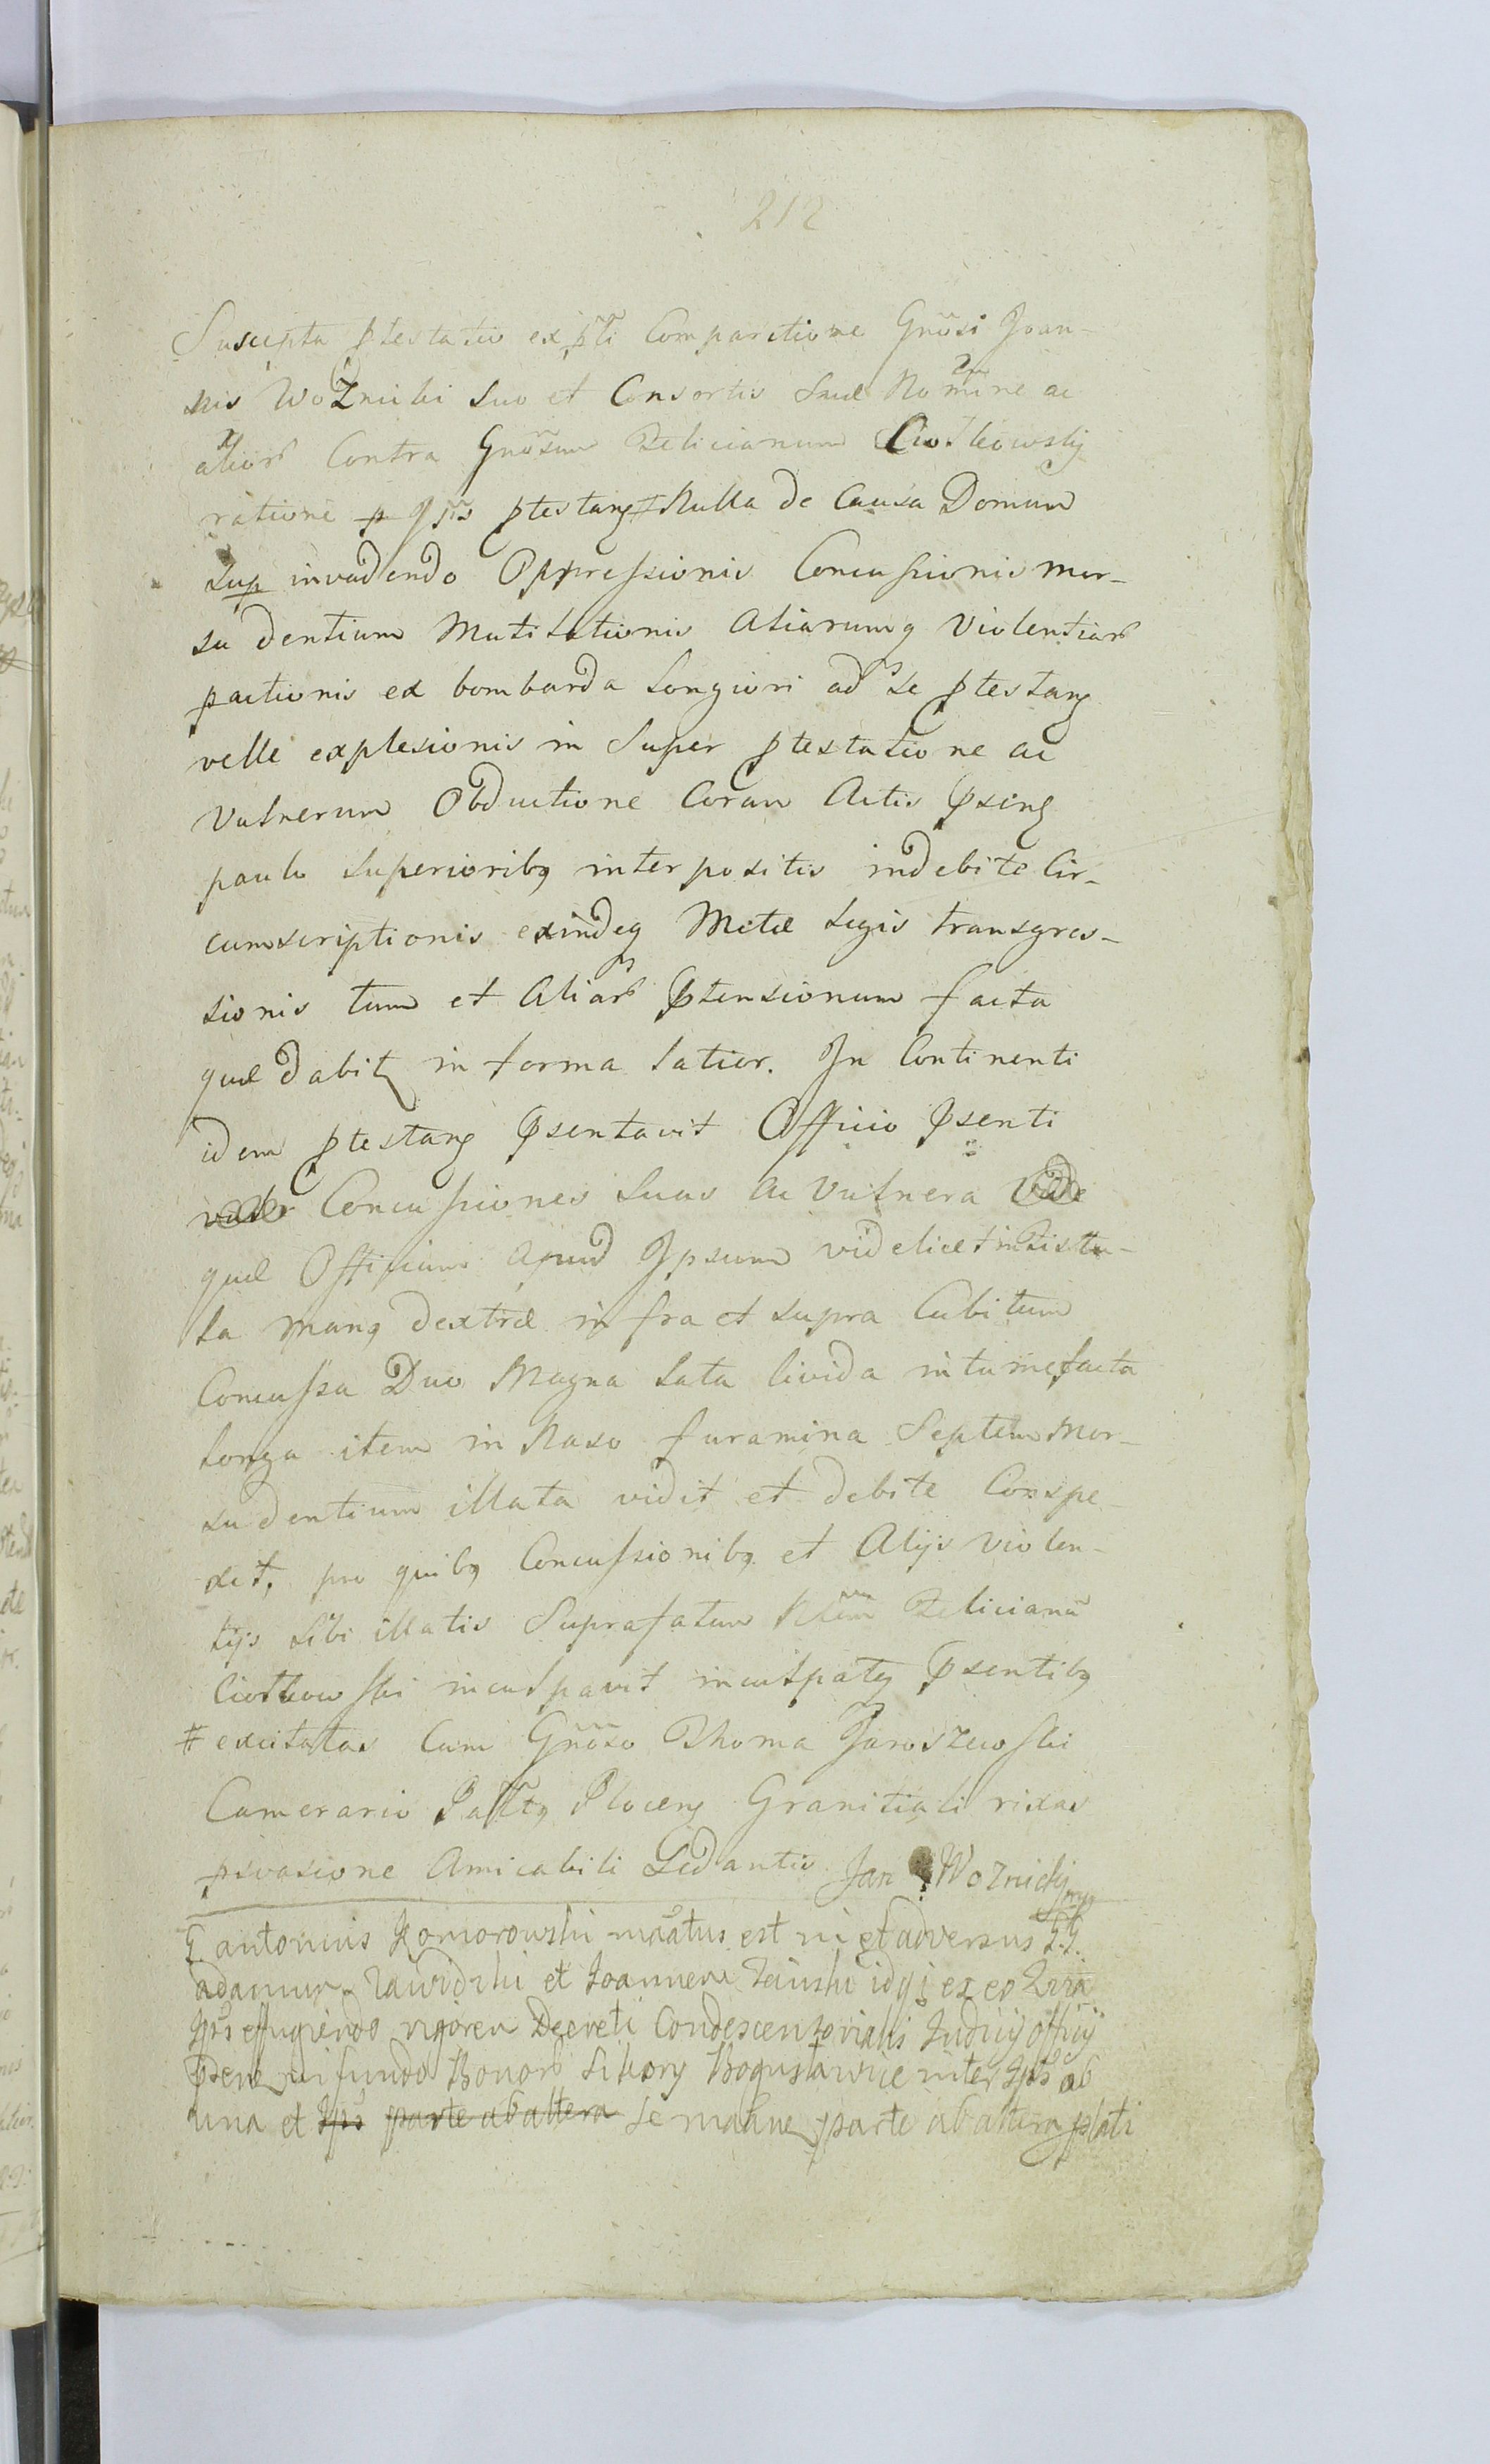 212
Suscepta ptestatio ex pti Comparitione Gnosi Joan-
nis Woznicki Suo et Consortis Suæ Nomine ac
alior Contra Gnosum Felicianum Ciotkowsky
ratione ptestang Nulla de Causa Domum
Sup invadendo Oppressionis Concussionis mor-
su dentium Mutilationis Aliarumq Violentiar
pactionis ex bombarda Longiori ad Se ptestang
velle explesionis in Super ptestatione ac
Vulnerum Obductione Coram Actis psing
paulo Superioribq interpositis indebite Cir-
cumscriptionis exindeq Metæ Legis transgres-
sionis tum et Aliar ptensionum facta
quæ dabitz in forma latior. In Continenti
idem ptestang psentavit Officio psenti
Concussiones Suas ac Vulnera
quæ Officium Apud Ipsum videlicet in Fistu-
la manq dextræ infra et supra Cubitum
Concussa Duo Magna Lata livida intumefacta
Longa item in Naso furamina Septem Mor-
su dentium illata vidit et debite Conspe-
xit, pro quibq Concussionibq et Alijs Violen-
tijs Sibi illatis Suprafatum Felicianū
Ciotkowski inculpavit inculpatq psentibq
# excitatas Cum Gnoso Thoma Jaroszewski
Camerario Plocens Granitiali rixas
psvasione Amicabili Sedantis Jan Woznicky mp
G antonius Komorowski est in et adversus
adamum Zawidzki et Joannem idq ex eo
Ips effugiendo rigorem Decreti Condescensorialis Judicij officij
psens in fundo Bonor Sikory Bogusławice inter Ips ab
una et Ips parte ab altera Se parte ab altera plati